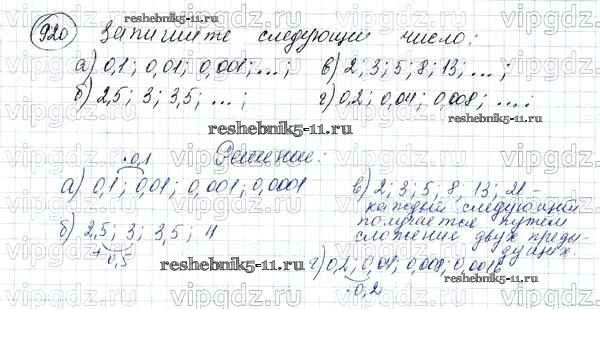 920 Запишите следующий число:
а) 0,1; 0,01; 0,001; ...; в) 2, 3; 5; 8; 13, ...;
б) 2,5; 3; 3,5; ...; г) 0,2; 0,04; 0,008; ....
reshebnik5-11.ru
reshebnik5-11.ru
reshebnik5-11.ru
Решение:
·0,1
а) 0,1; 0,01; 0,001; 0,0001
б) 2,5; 3; 3,5; 4
+0,5
в) 2; 3; 5, 8, 13; 21 -
каждый следующий
получается путем
сложения двух преды-
дущих.
г) 0,2; 0,04; 0,008; 0,0016
·0,2
reshebnik5-11.ru
vipgdz.ru